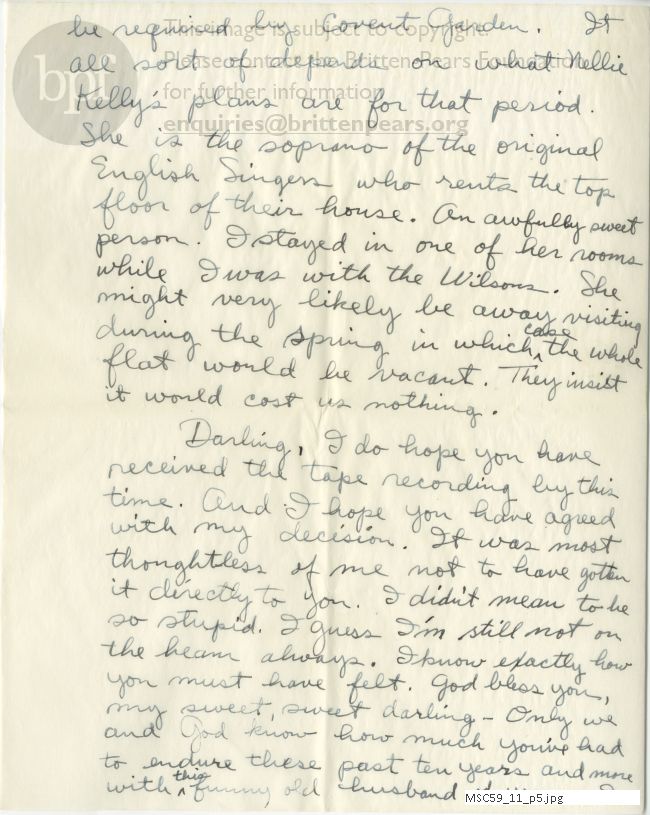 be required by Covent Garden. It
all sort of depends on what Nellie
Kelly's plans are for that period.
She is the soprano of the original
English Singers who rents the top
floor of their house. An awfully sweet
person. I stayed in one of her rooms
while I was with the Wilsons. She
might very likely be away visiting
during the spring in which case the whole
flat would be vacant. They insist
it would cost us nothing.
Darling, I do hope you have
received the tape recording by this
time. And I hope you have agreed
with my decision. It was most
thoughtless of me not to have gotten
it directly to you. I didn't mean to be
so stupid. I guess I'm still not on
the beam always. I know exactly how
you must have felt. God bless you,
my sweet, sweet darling – Only we
and God know how much you've had
to endure these past ten years and more
with this funny old husband
This image is subject to copyright.
Please contact the Britten-Pears Foundation
for further information
enquiries@brittenpears.org
bpf
MSC59_11_p5.jpg